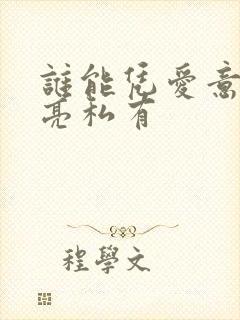 誰能凭愛意
亮私有
程學文